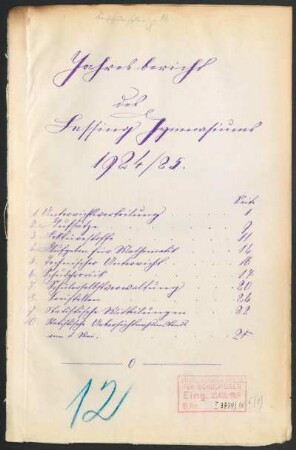 Jahresbericht
des
Lessing Gymnasiums
1924/25.
Seite
1. Unterrichtsverteilung . . . 1
2. Aufsätze . . . 9
3. Lektürestoffe . . . 11
4. Aufgaben für Mathematik . . 14
5. Technischer Unterricht . . 16
6. Schulchronik . . . 17
7. Schülerselbstverwaltung . . 20
8. Freistellen . . . 22
9. Statistische Mitteilungen . . 22
10. Statistische Übersicht
am 1. Mai. . . . 25
0
12
Eing.